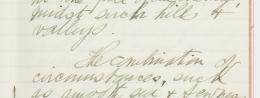 in the
midst such hills &
valleys.
The combination of
circumstances, such
as smooth sea &